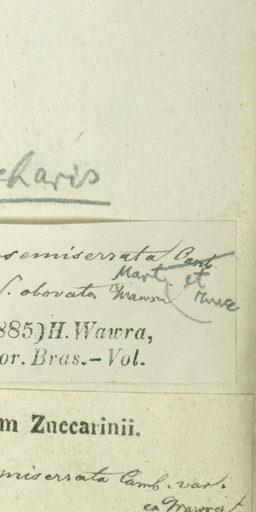 charis
semiserrata Camb.
Mart. et
f. obovata Wawra Zucc
885) H. Wawra,
or. Bras.–Vol.
m Zuccarinii.
miserrata Camb. var.
ex Wawra